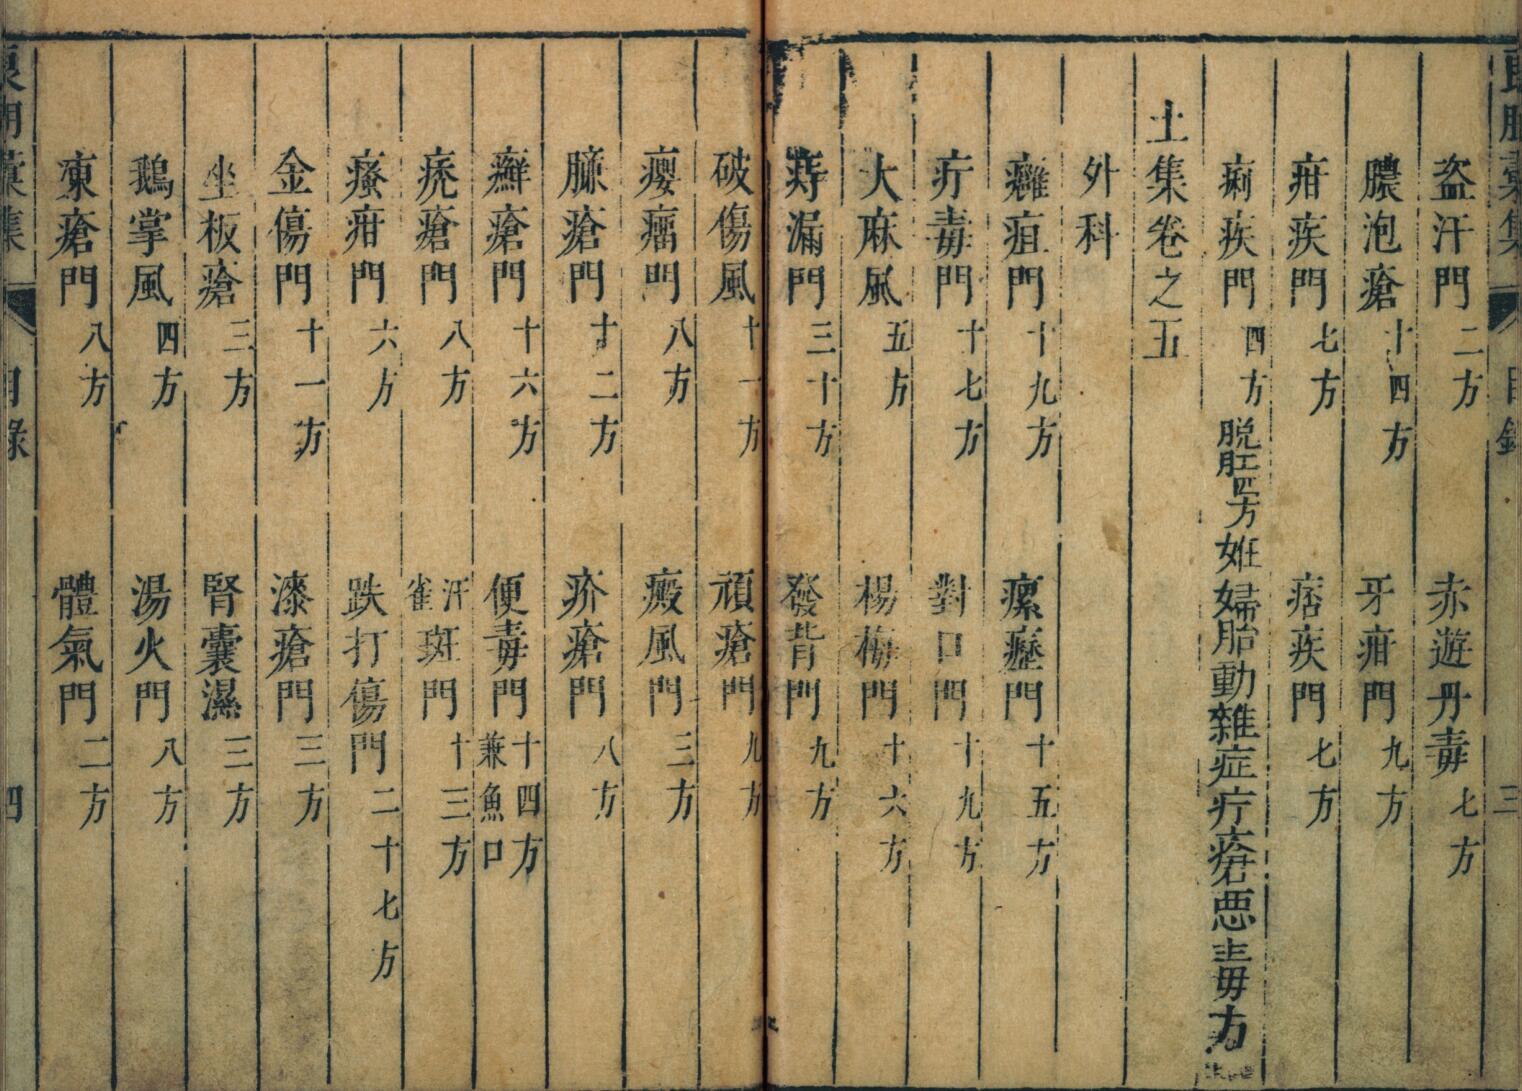 盜汗門二方 赤遊丹毒七方
膿泡瘡十四方 牙疳門九方
疳疾門七方 痞疾門七方
痢疾門四方 脱肛四方 姙婦胎動雜症疔瘡悪毒方
土集卷之五
外科
癰疽門十九方 瘰癧門十五方
疔毒門十七方 對口門十九方
大麻風五方 楊梅門十六方
痔漏門三十方 發背門九方
破傷風十一方 頑瘡門九方
癭瘤門八方 癜風門三方
臁瘡門十二方 疥瘡門八方
癬瘡門十六方 便毒門十四方兼魚口
禿瘡門八方 汗雀斑門十三方
疳門六方 跌打傷門二十七方
金傷門十一方 漆瘡門三方
坐板瘡三方 腎囊濕三方
鵝掌風四方 湯火門八方
凍瘡門八方 體氣門二方
集 目錄 四